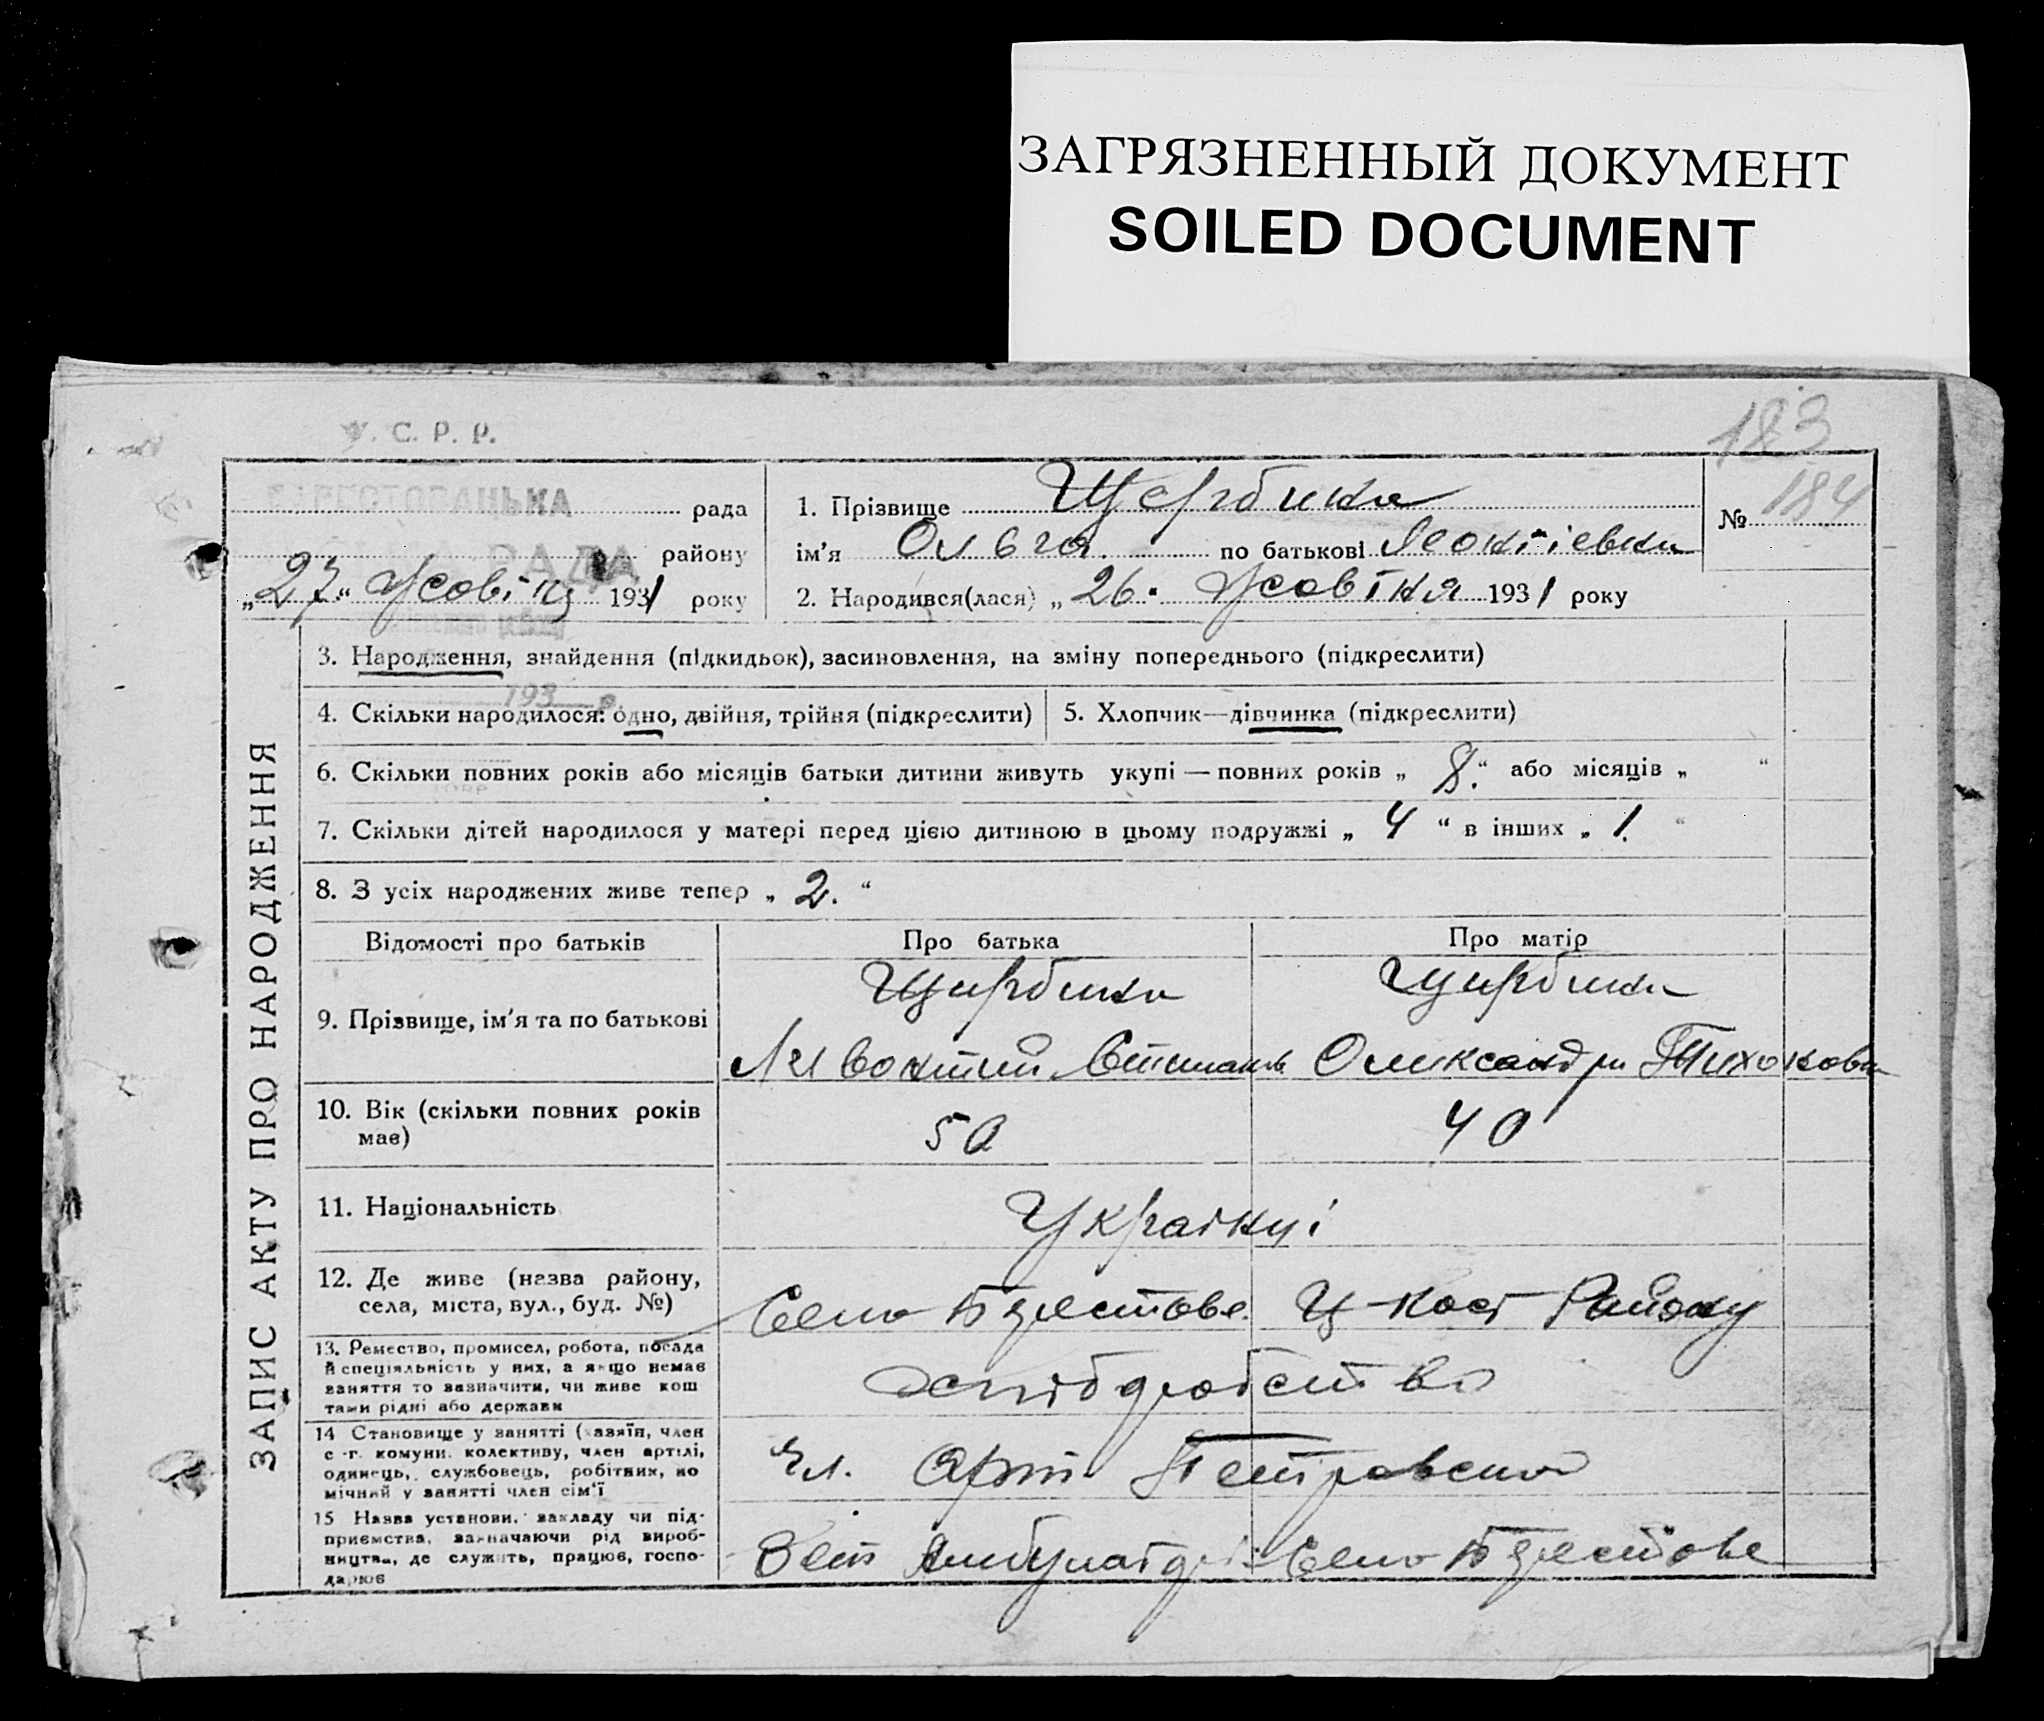 ЗАГРЯЗНЕННЫЙ ДОКУМЕНТ
SOILED DOCUMENT
У. С. Р. Р.
183
рада
1. Прізвище Щербина
№ 184
РАДА району
ім'я Ольга по батькові
„27“ 1931 року
2. Народився(лася) „26“ 1931 року
ЗАПИС АКТУ ПРО НАРОДЖЕННЯ
3. Народження, знайдення (підкидьок), засиновлення, на зміну попереднього (підкреслити)
193 р.
4. Скільки народилося: одно, двійня, трійня (підкреслити)
5. Хлопчик—дівчинка (підкреслити)
6. Скільки повних років або місяців батьки дитини живуть укупі — повних років „8.“ або місяців „ “
7. Скільки дітей народилося у матері перед цією дитиною в цьому подружжі „4“ в інших „1.“
8. З усіх народжених живе тепер „2.“
Відомості про батьків
Про батька
Про матір
9. Прізвище, ім'я та по батькові
Щирбина
Щирбина
Олександра Тихонова
10. Вік (скільки повних років має)
50
40
11. Національність
Українці
12. Де живе (назва району, села, міста, вул., буд. №)
Село Району
13. Ремество, промисел, робота, посада й спеціяльність у них, а якщо немає заняття то зазначити, чи живе кош тами рідні або держави
14 Становище у занятті (хазяїн, член с.-г. комуни. колективу, член артілі, одинець, службовець, робітник, по мічний у занятті член сім'ї
Чл. Арт Петровского
15 Назва установи, закладу чи під-
приємства, зазначаючи рід вироб-
ництва, де служить, працює, госпо-
дарює
Село